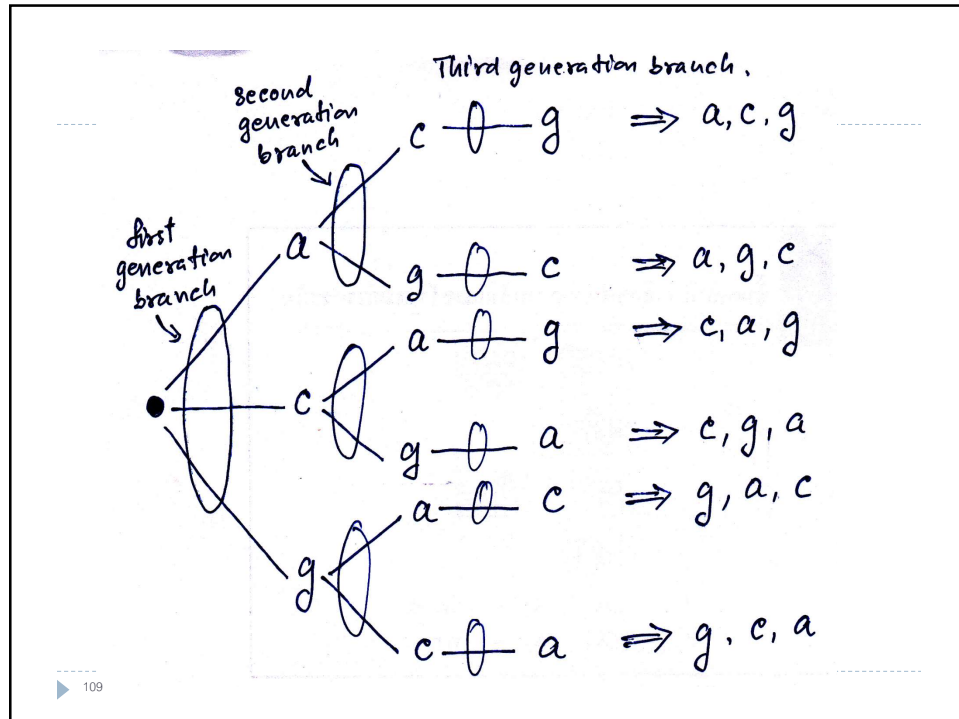 Third generation branch.
second
generation
branch
first
generation
branch
a
c
g
c
g
a
g
a
c
g
c
g
a
c
a
⇒ a, c, g
⇒ a, g, c
⇒ c, a, g
⇒ c, g, a
⇒ g, a, c
⇒ g, c, a
109